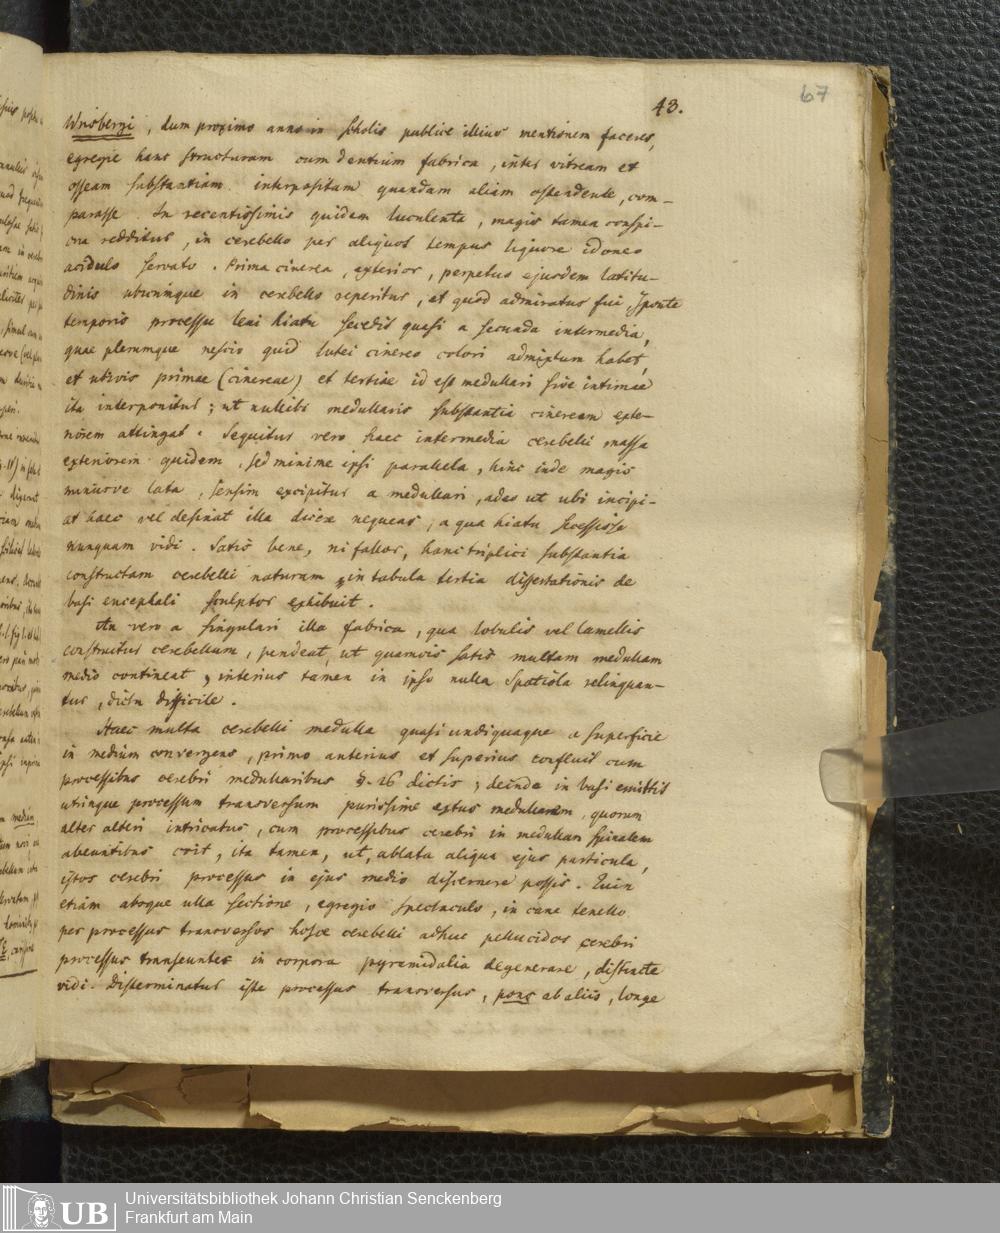 43.
67
Wrisbergi, dum proximo anno in scholis publice illius mentionem faceres,
egregie hanc structuram cum dentium fabrica, inter vitream et
osseam substantiam interpositam quandam aliam ostendente, com-
parasse. In recentissimis quidem luculenta, magis tamen conspi-
cua redditur, in cerebello per aliquot tempus liquore idoneo
acidulo servato. Prima cinerea, exterior, perpetuo ejusdem latitu-
dinis ubicunque in cerebello reperitur, et quod admiratus fui, sponte
temporis processu leni hiatu secedit quasi a secunda intermedia,
quae plerumque nescio quid lutei cinereo colori admixtum habet,
et utivis primae (cinereae) et tertiae id est medullari sive intimae
ita interponitur; ut nullibi medullaris substantia cineream exte-
riorem attingat. Sequitur vero haec intermedia cerebelli massa
exteriorem quidem, sed minime ipsi parallela, hinc inde magis
minusve lata, sensim excipitur a medullari, adeo ut ubi incipi-
at haec vel desinat illa dicere nequeas, a qua hiatu
nunquam vidi. Satis bene, ni fallor, hanc triplici substantia
constructam cerebelli naturam in tabula tertia dissertationis de
basi encephali sculptor exhibuit.
An vero a singulari illa fabrica, qua lobulis vel lamellis
construitur cerebellum, pendeat, ut quamvis satis multam medullam
medio contineat, interius tamen in ipso nulla spatiola relinquan-
tur, dictu difficile.
Haec multa cerebelli medulla quasi undiquaque a superficie
in medium convergens, primo anterius et superius confluit cum
processibus cerebri medullaribus §. 26 dictis; deinde in basi emittit
utrinque processum transversum purissime extus medullarem, quorum
alter alteri intricatus, cum processibus cerebri in medullam spinalem
abeuntibus coit, ita tamen, ut, ablata aliqua ejus particula,
istos cerebri processus in ejus medio discernere possis. Quin
etiam absque ulla sectione, egregio spectaculo, in cane tenello
per processus transversos hosce cerebelli adhuc pellucidos cerebri
processus transeuntes in corpora pyramidalia degenerare, distincte
vidi. Disterminatur iste processus transversus, pons ab aliis, longe
UB
Universitätsbibliothek Johann Christian Senckenberg
Frankfurt am Main